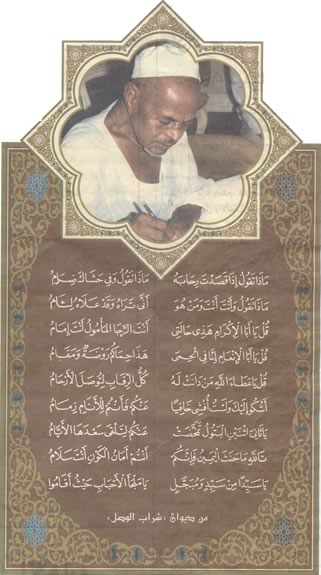 مَاذَا نَقُولُ إِذَا قَصَدْتَ رِحَابَهُ مَاذَا نَقُولُ وَفِي حَشَاكَ ضِرَامُ
مَاذَا نَقُولُ وَأَنْتَ أَنْتَ وَمَنْ هُوَ أَنَّى تَرَاهُ وَقَدْ عَلَاهُ لِثَامُ
قُلْ يَا أَبَا الْإِكْرَامِ هَذِي حَالَتِي أَنْتَ الرَّجَا الْمَأْمُولُ أَنْتَ إِمَامُ
قُلْ يَا أَبَا الْإِنْعَامِ إِنَّا فِي الْحِمَى هَذَا حِمَاكُمْ رَوْضَةٌ وَمَقَامُ
قُلْ يَا عَطَاءَ اللَّهِ مَنْ ذَلَّتْ لَهُ كُلُّ الرِّقَابِ لِتُوصَلَ الْأَرْحَامُ
أَشْكِي إِلَيْكَ وَلَسْتُ أُفْشِي خَافِيًا عَنْكُمْ فَأَنْتُمْ لِلْأَنَامِ زِمَامُ
يَا ثَانِيَ اثْنَيْنِ الْبَتُولُ تَمَخَّضَتْ عَنْكُمْ لِتَلْقَى سَعْدَهَا الْأَيَّامُ
تَاللَّهِ مَا حَنِثَ الْيَمِينُ فَإِنَّكُمْ أَنْتُمْ أَمَانُ الْكَوْنِ أَنْتَ سَلَامُ
يَا سَيِّدًا مِنْ سَيِّدٍ وَمُبَجَّلٍ يَا مَلْجَأَ الْأَحْبَابِ حَيْثُ أَقَامُوا
من ديوان «شراب الوصل»